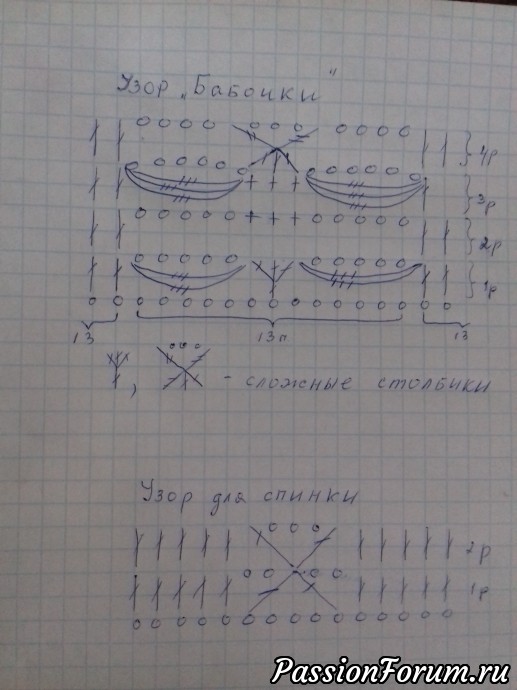 Узор „Бабочки"
4р
3р
2р
1р
13 13п 13
, - сложные столбики
Узор для спинки
2р
1р
PassionForum.ru